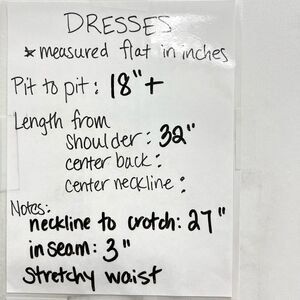 DRESSES
* measured flat in inches
Pit to pit: 18"+
Length from
shoulder: 32"
center back:
center neckline:
Notes:
neckline to crotch: 27"
inseam: 3"
stretchy waist